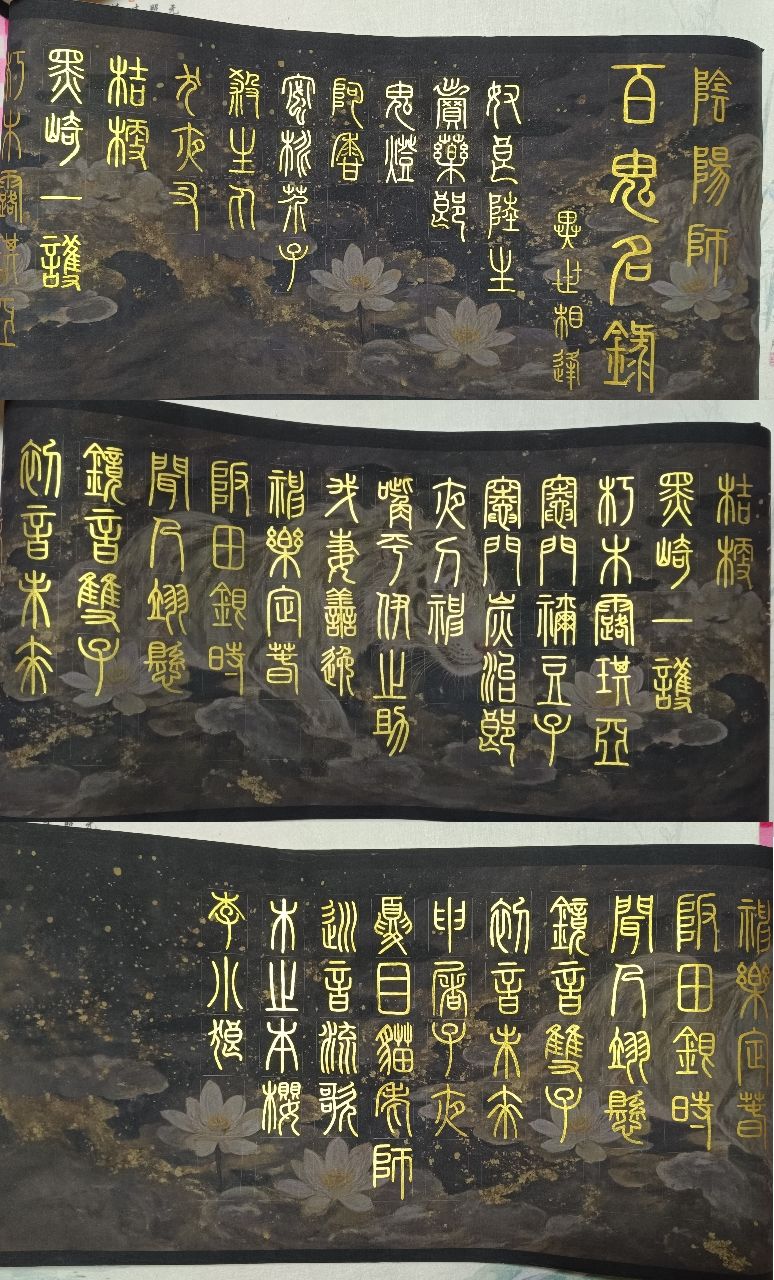 陰陽師
百鬼名錄
異世相逢
奴良陸生
賣藥郎
鬼燈
阿香
蜜桃芥子
殺生丸
犬夜叉
桔梗
黑崎一護
朽木露琪亞
桔梗
黑崎一護
朽木露琪亞
竈門禰豆子
竈門炭治郎
夜刀神
嘴平伊之助
我妻善逸
神樂定春
阪田銀時
聞人翊懸
鏡音雙子
初音未來
神樂定春
阪田銀時
聞人翊懸
鏡音雙子
初音未來
申屠子夜
夏目貓老師
巡音流歌
木之本櫻
李小狼